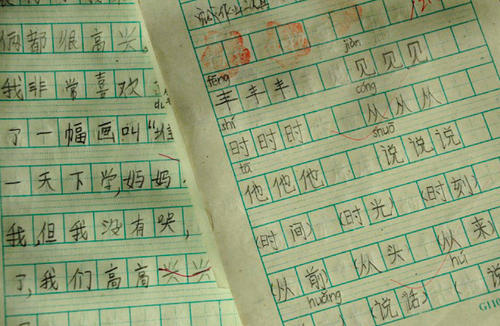 俩都很高兴,
我非常喜欢
了一幅画叫“
一天下学,妈妈
我,但我没有哭,
了,我们高高兴兴
fēng jiàn
丰丰丰 见见见
shí cóng
时时时 从从从
tā shuō
他他他 说说说
(时间)(时光)(时刻)
(从前)(从头)(从来)
(说话)(说